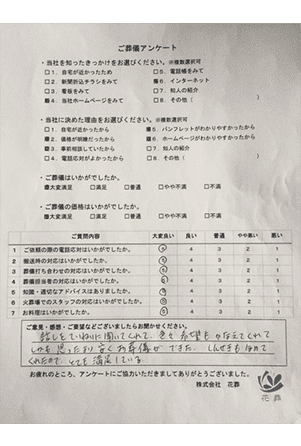 ご葬儀アンケート
・当社を知ったきっかけをお選びください。※複数選択可
□1. 自宅が近かったため □5. 電話帳をみて
□2. 新聞折込チラシをみて ■6. インターネット
□3. 看板をみて □7. 知人の紹介
■4. 当社ホームページをみて □8. その他( )
・当社に決めた理由をお選びください。※複数選択可
□1. 自宅が近かったから ■5. パンフレットがわかりやすかったから
■2. 価格が明瞭だったから ■6. ホームページがわかりやすかったから
■3. 事前相談していたから □7. 知人の紹介
□4. 電話応対がよかったから □8. その他( )
・ご葬儀はいかがでしたか。
■大変満足 □満足 □普通 □やや不満 □不満
・ご葬儀の価格はいかがでしたか。
■大変満足 □満足 □普通 □やや不満 □不満
ご質問内容 大変良い 良い 普通 やや悪い 悪い
1 ご依頼の際の電話応対はいかがでしたか。 5 4 3 2 1
2 搬送時の対応はいかがでしたか。 5 4 3 2 1
3 葬儀打ち合わせの対応はいかがでしたか。 5 4 3 2 1
4 葬儀担当者の対応はいかがでしたか。 5 4 3 2 1
5 知識・適切なアドバイスはありましたか。 5 4 3 2 1
6 火葬場でのスタッフの対応はいかがでしたか。 5 4 3 2 1
7 お料理はいかがでしたか。 5 4 3 2 1
ご意見・感想・ご要望などございましたらお聞かせください。
話しをていねいに聞いてくれて、色々希望もかなえてくれて
しかも思ったより安くお葬儀ができた。しんせきもほめて
くれたので、とても満足している。
お疲れのところ、アンケートにご協力いただきましてありがとうございました。
株式会社 花葬
花葬